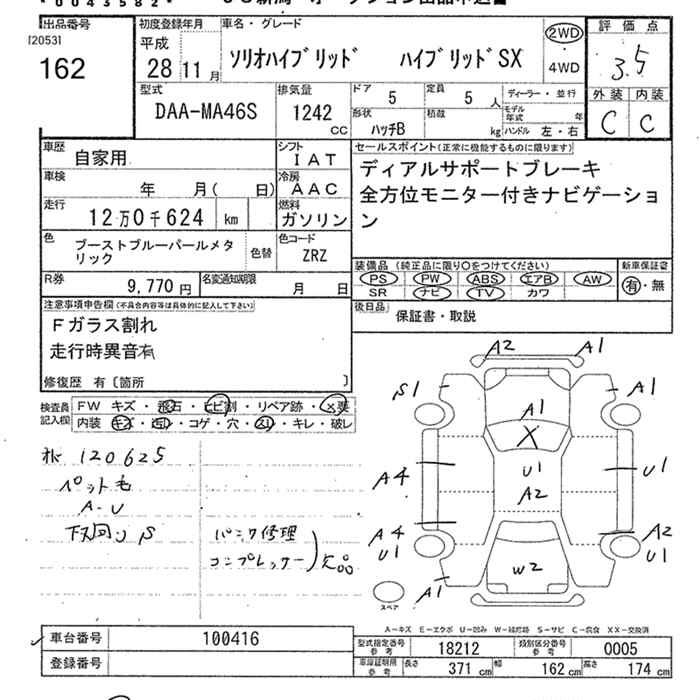 *0043582*
出品番号
[2053]
162
初度登録年月
平成
28 11月
車名・グレード
ソリオハイブリッド ハイブリッドSX
2WD
4WD
評価点
3.5
外装 内装
C C
型式
DAA-MA46S
排気量
1242 CC
ドア 5
定員 5 人
形状 ハッチB
積載 kg
ディーラー・並行
モデル年式 年
ハンドル 左・右
車歴
自家用
シフト
IAT
車検
年 月( 日)
冷房
AAC
走行
12万0千624 km
燃料
ガソリン
色
ブーストブルーパールメタリック
色替
色コード
ZRZ
R券
9,770円
名変通知期限
月 日
セールスポイント(正常に機能するものに限ります)
ディアルサポートブレーキ
全方位モニター付きナビゲーショ
ン
装備品 (純正品に限り○をつけてください)
PS PW ABS エアB AW
SR ナビ TV カワ
新車保証書
有・無
後日品
保証書・取説
注意事項申告欄(不具合内容等は具体的に記入して下さい)
Fガラス割れ
走行時異音有
修復歴 有〔箇所 〕
検査員記入欄
FW キズ・飛石・ヒビ割・リペア跡・×要
内装 キズ・汚れ・コゲ・穴・スリ・キレ・破レ
120625
ペット毛
A・U
下回り S
パンク修理
コンプレッサー 欠品
A2 A1
S1 A1
A1
X
A4 U1 U1
A2
A4 A2
U1 U1
W2
A1
スペア
A-キズ E-エクボ U-凹み W-補修跡 S-サビ C-腐食 XX-交換済
車台番号 100416
登録番号
型式指定番号参考 18212
類別区分番号参考 0005
車庫証明用参考
長さ 371 cm
幅 162 cm
高さ 174 cm